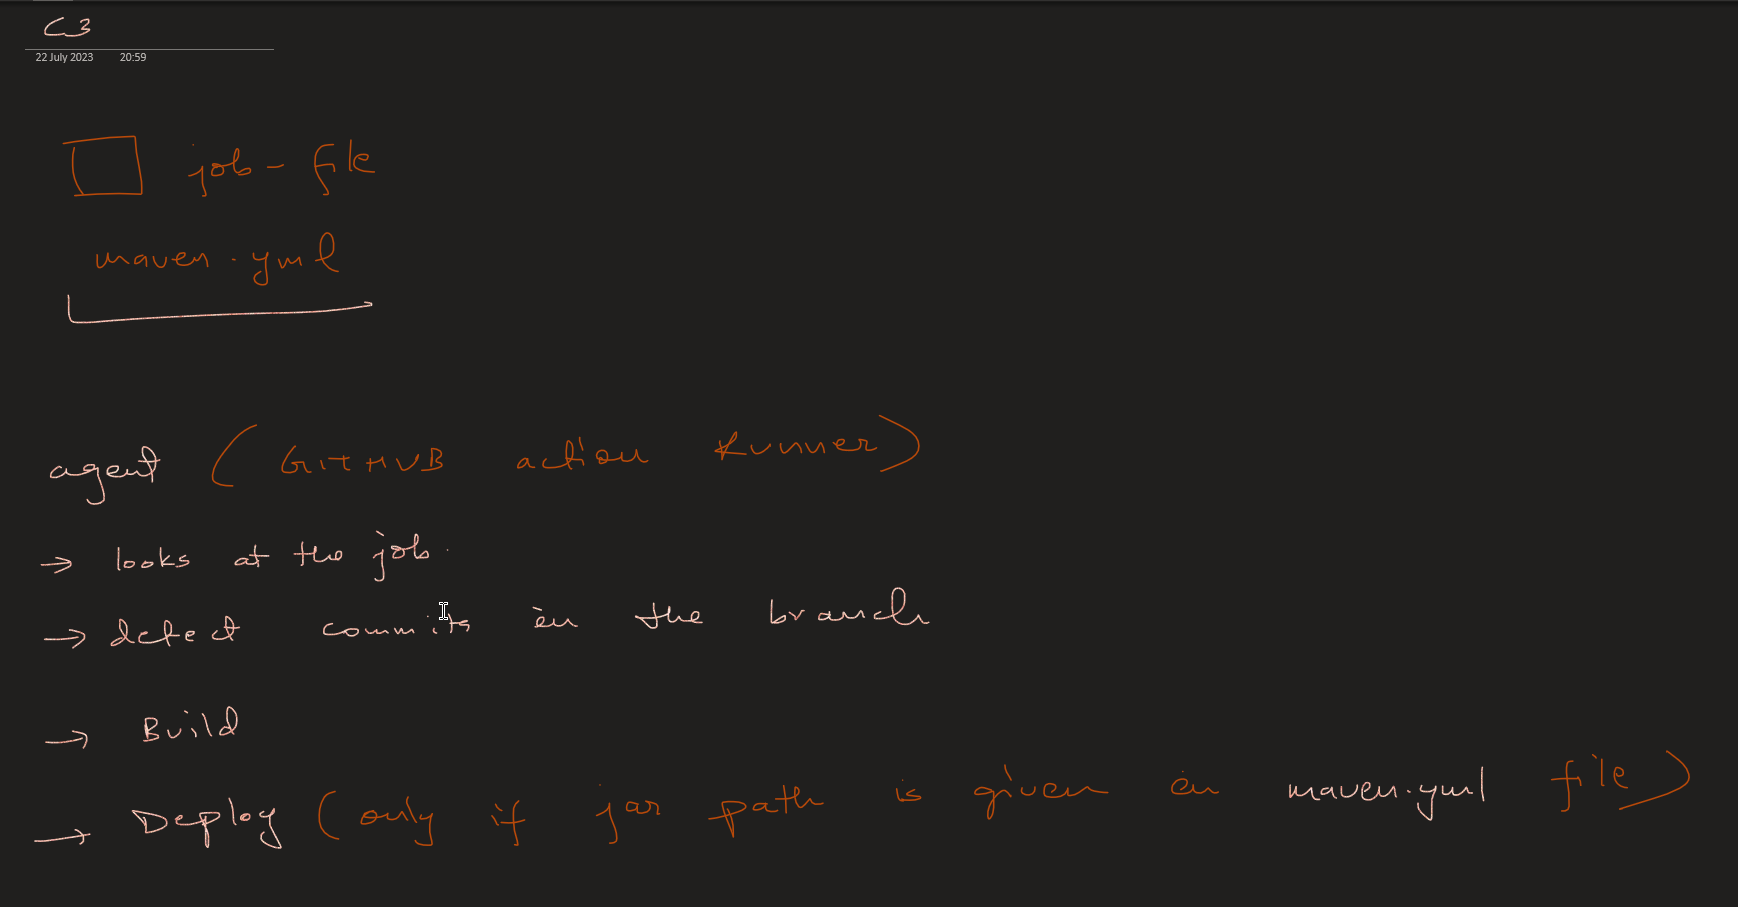 C3
22 July 2023 20:59
job-file
maven.yml
agent (GITHUB action Runner)
→ looks at the job.
→ detect commits in the branch
→ Build
→ Deploy (only if jar path is given in maven.yml file)